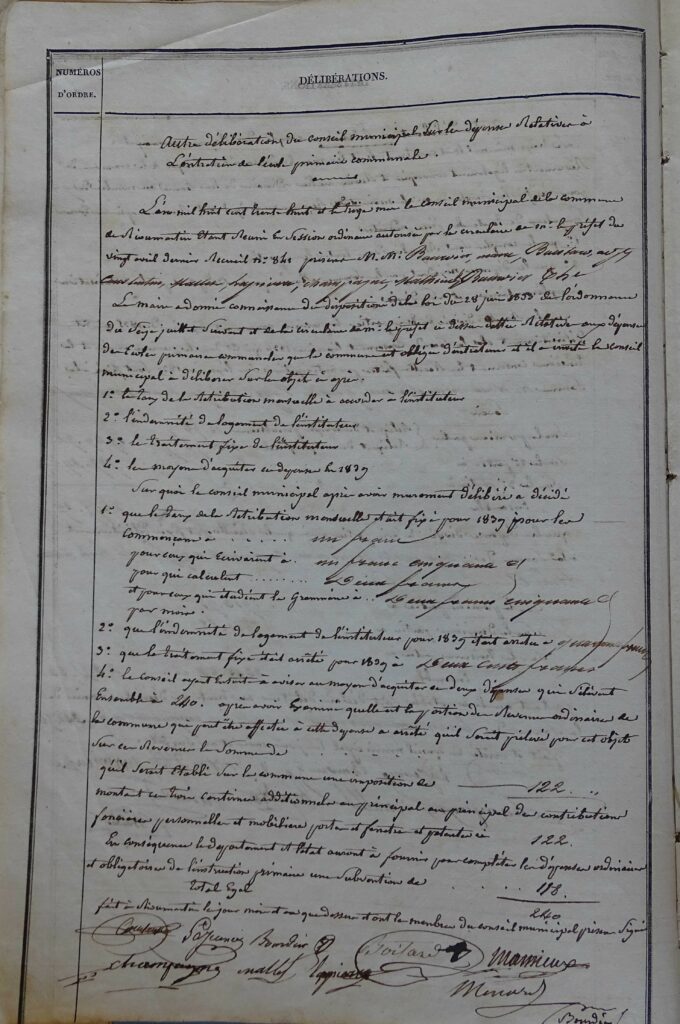 NUMÉROS
D'ORDRE.
DÉLIBÉRATIONS.
Autre délibération du conseil municipal sur les dépense Relatives à
L'entretien de l'école primaire communale.
L'an mil huit cent trente huit et le seize mai le Conseil municipal de la commune
de étant Réuni en Session ordinaire autorisée par la circulaire de mr le préfet du
vingt avril dernier Recueil no 841 présens M. Mr
Le maire a donné connaissance des disposition de la loi du 28 juin 1833 de l'ordonnance
du seize juillet suivant et de la circulaire de mr le préfet ci dessus datée Relative aux dépense
de l'école primaire communales que la commune est obligée d'entretenir et il a invité le conseil
municipal à délibérer Sur les objets ci après.
1o le taux de la Rétribution mensuelle à accorder à l'instituteur
2o l'indemnité de logement de l'instituteur
3o le traitement fixe de l'instituteur
4o les moyens d'acquiter ces dépense en 1839
Sur quoi le conseil municipal après avoir murement délibéré à décidé
1o que le taux de la Rétribution mensuelle était fixé pour 1839 pour les
Commençans à . . . . . un franc
pour ceux qui Ecrivaient à . un franc cinquante c
pour qui calculent . . . . . . . Deux francs
et pour ceux qui étudient la Grammère à . . Deux francs cinquante c
par mois.
2o que l'indemnité de logement de l'instituteur pour 1839 était arretée à quarante francs
3o que le traitement fixe était arreté pour 1839 à Deux cents francs
4o le Conseil ayant Ensuite à aviser au moyen d'acquiter ces deux dépense qui s'élèvent
Ensemble à 240. après avoir Examiné quelle est la portion des Revenus ordinaires de
la commune qui peut être affectée à cette dépense a arreté qu'il serait prélevé pour cet objet
Sur ces Revenus la Somme de
qu'il serait Etabli Sur la commune une imposition de 122 . "
montant ces trois centimes additionnels au principal au principal des contributions
foncière personnelle et mobiliere porte et fenetre et patente ci 122.
En conséquence le département et l'état auront à fournir pour complèter les dépenses ordinaires
et obligatoires de l'instruction primaire une subvention de . . . . 118.
total Egal 240
fait à le jour mois et an que dessus et ont les membres du conseil municipal présens Signé
Bourdier
champagne mallet
Mercier
Bourdier